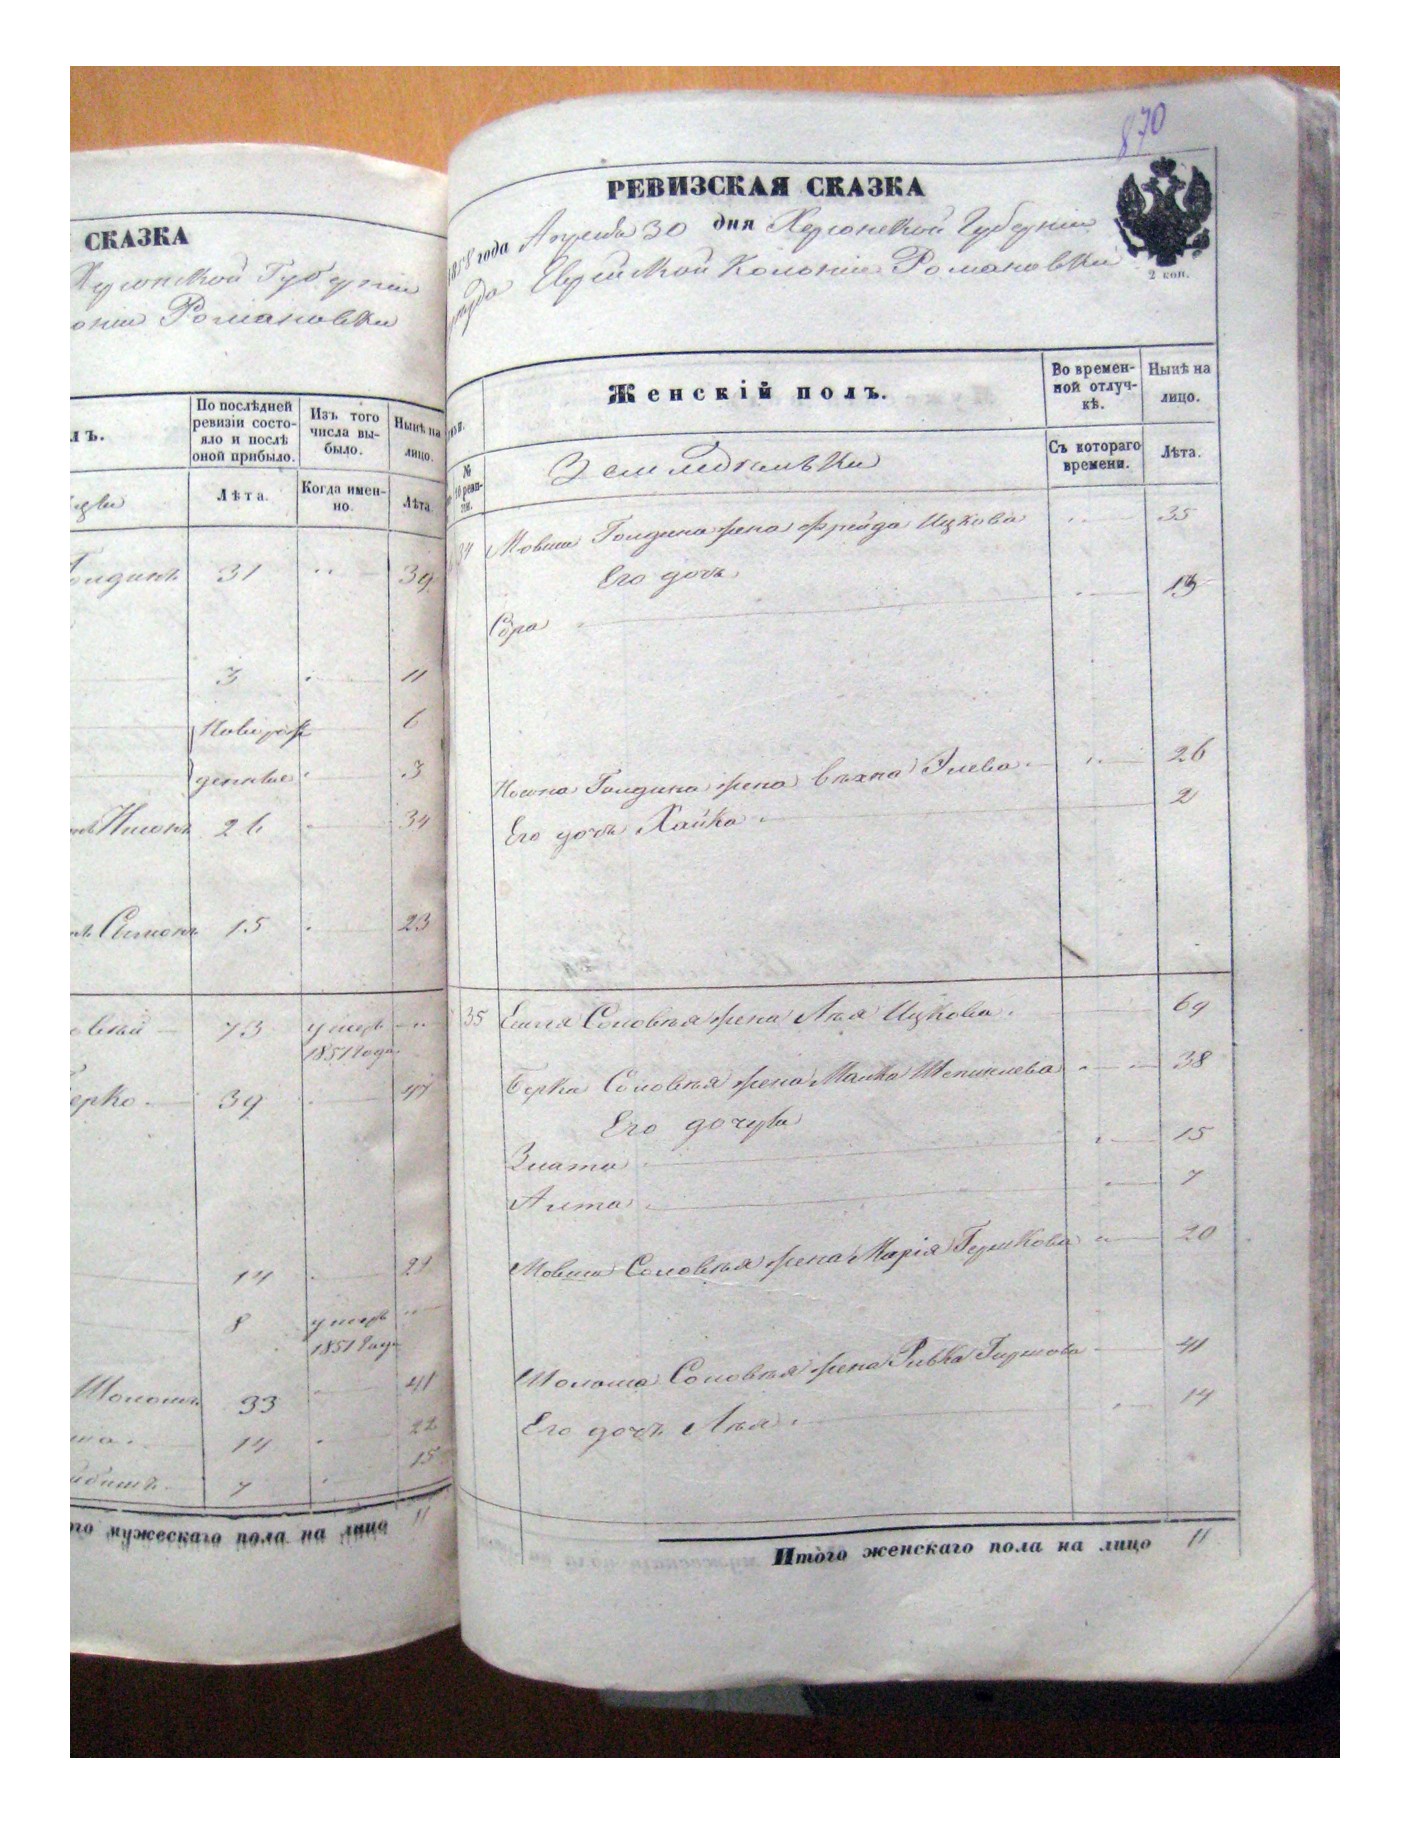 СКАЗКА
Херсонской Губернiи
Романовки
По послѣдней ревизіи состояло и послѣ оной прибыло.
Изъ того числа выбыло.
Нынѣ на лицо.
лъ.
Лѣта.
Когда именно.
Лѣта
31 39
3 11
Новорож 6
денные 3
26 34
15 23
73 умеръ
1851 года
Берко 39 47
14 22
8 умеръ
1851 года
33 41
14 22
7 15
мужескаго пола на лицо 11
870
РЕВИЗСКАЯ СКАЗКА
1858 года Апреля 30 дня Херсонской Губернiи
Еврейской Колонiи Романовки
2 коп.
Женскій полъ.
Во временной отлучкѣ.
Нынѣ на лицо.
№
Земледѣльѣки
Съ котораго времени.
Лѣта.
34 Мовши Голдина жена Фрейда Ицкова 35
Его дочь
Сора 13
Носона Голдина жена 26
Его дочь Хайка 2
35 Соловѣя жена Лѣя Ицкова 69
Берка Соловѣя жена Малка 38
Его дочери
Злата 15
7
Мовши Соловѣя жена Марiя Гершкова 20
Шолома Соловѣя жена Ривка 41
Его дочь Лѣя 14
Итого женскаго пола на лицо 11